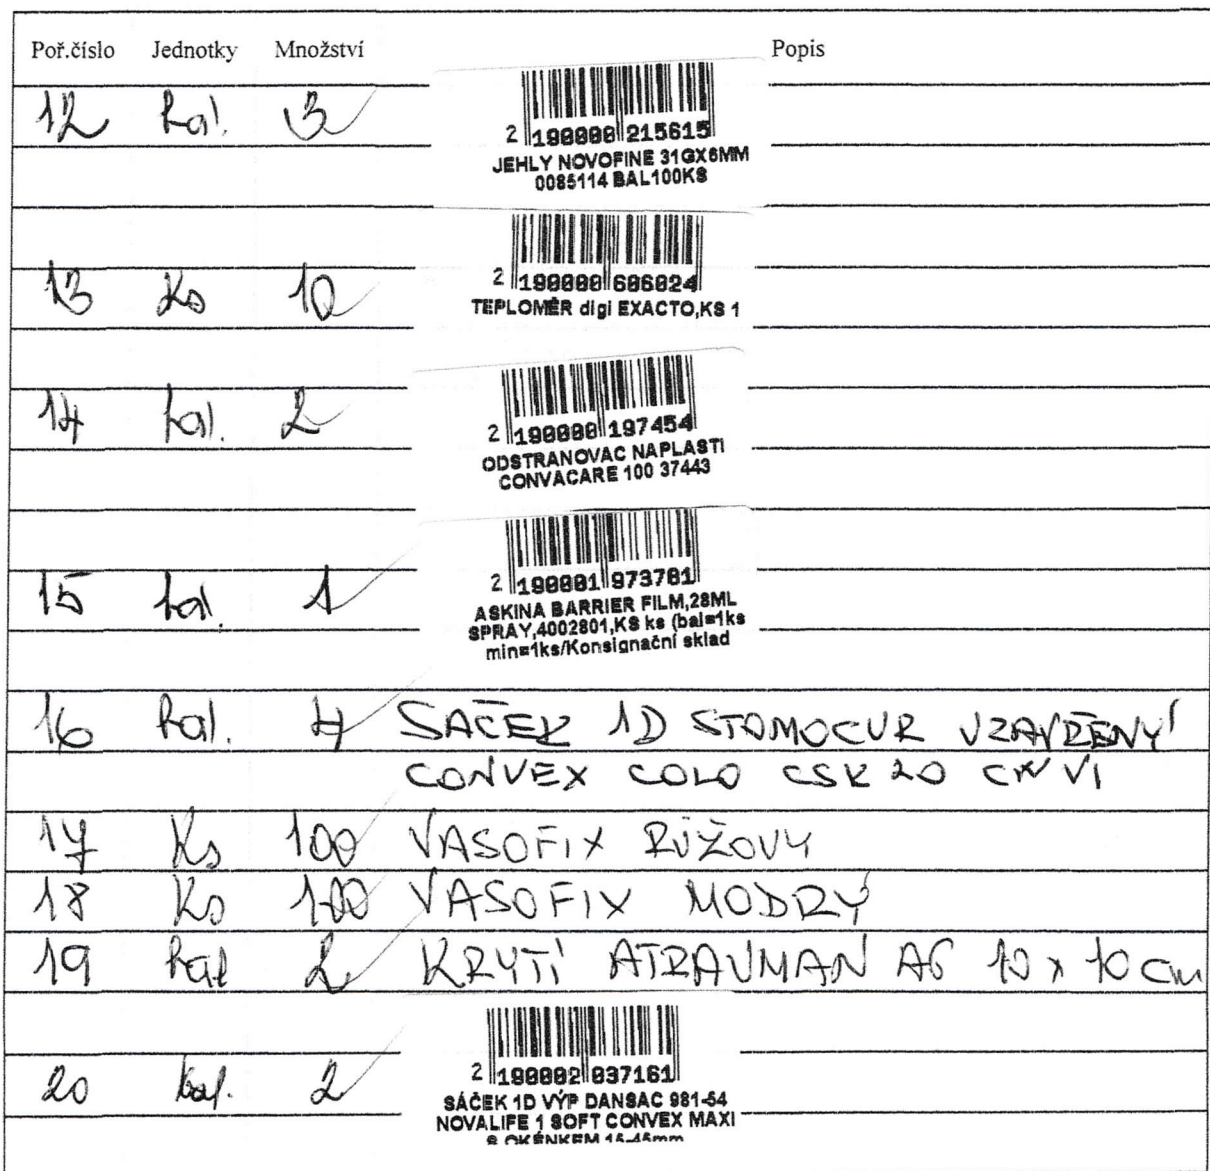 Poř.číslo Jednotky Množství Popis
12 bal. 3
2 190000 215615
JEHLY NOVOFINE 31GX6MM
0085114 BAL100KS
2 190000 606024
13 Ks 10
TEPLOMĚR digi EXACTO,KS 1
14 bal. 2
2 190000 197454
ODSTRANOVAC NAPLASTI
CONVACARE 100 37443
15 bal 1
2 190001 973701
ASKINA BARRIER FILM,28ML
SPRAY,4002801,KS ks (bal=1ks
min=1ks/Konsignační sklad
16 bal. 4 SÁČEK 1D STOMOCUR UZAVŘENÝ
CONVEX COLO CSK 20
17 Ks 100 VASOFIX RŮŽOVÝ
18 Ks 100 VASOFIX MODRÝ
19 bal 2 KRYTÍ ATRAUMAN AG 10 x 10 cm
2 190002 037161
20 bal. 2
SÁČEK 1D VÝP DANSAC 981-54
NOVALIFE 1 SOFT CONVEX MAXI
S OKÉNKEM 15-45mm